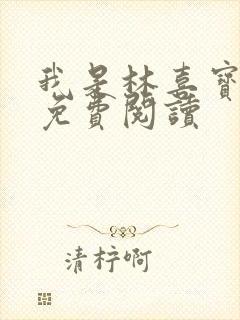 我是林喜寶
免費閱讀
清梓啊